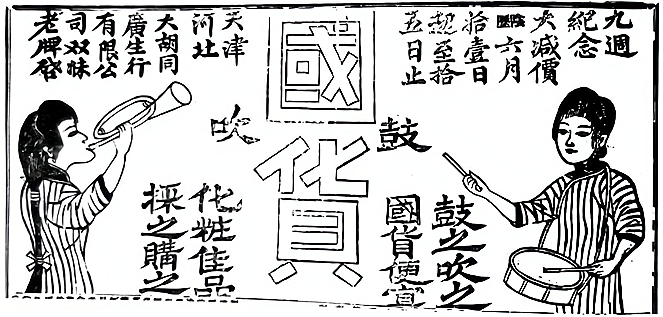 九週
紀念
大減價
六月
拾壹日
起至拾
五日止
國貨
鼓
吹
鼓之吹之
國貨便宜
化粧佳品
採之購之
天津
河北
大胡同
廣生行
有限公
司双妹
老牌發